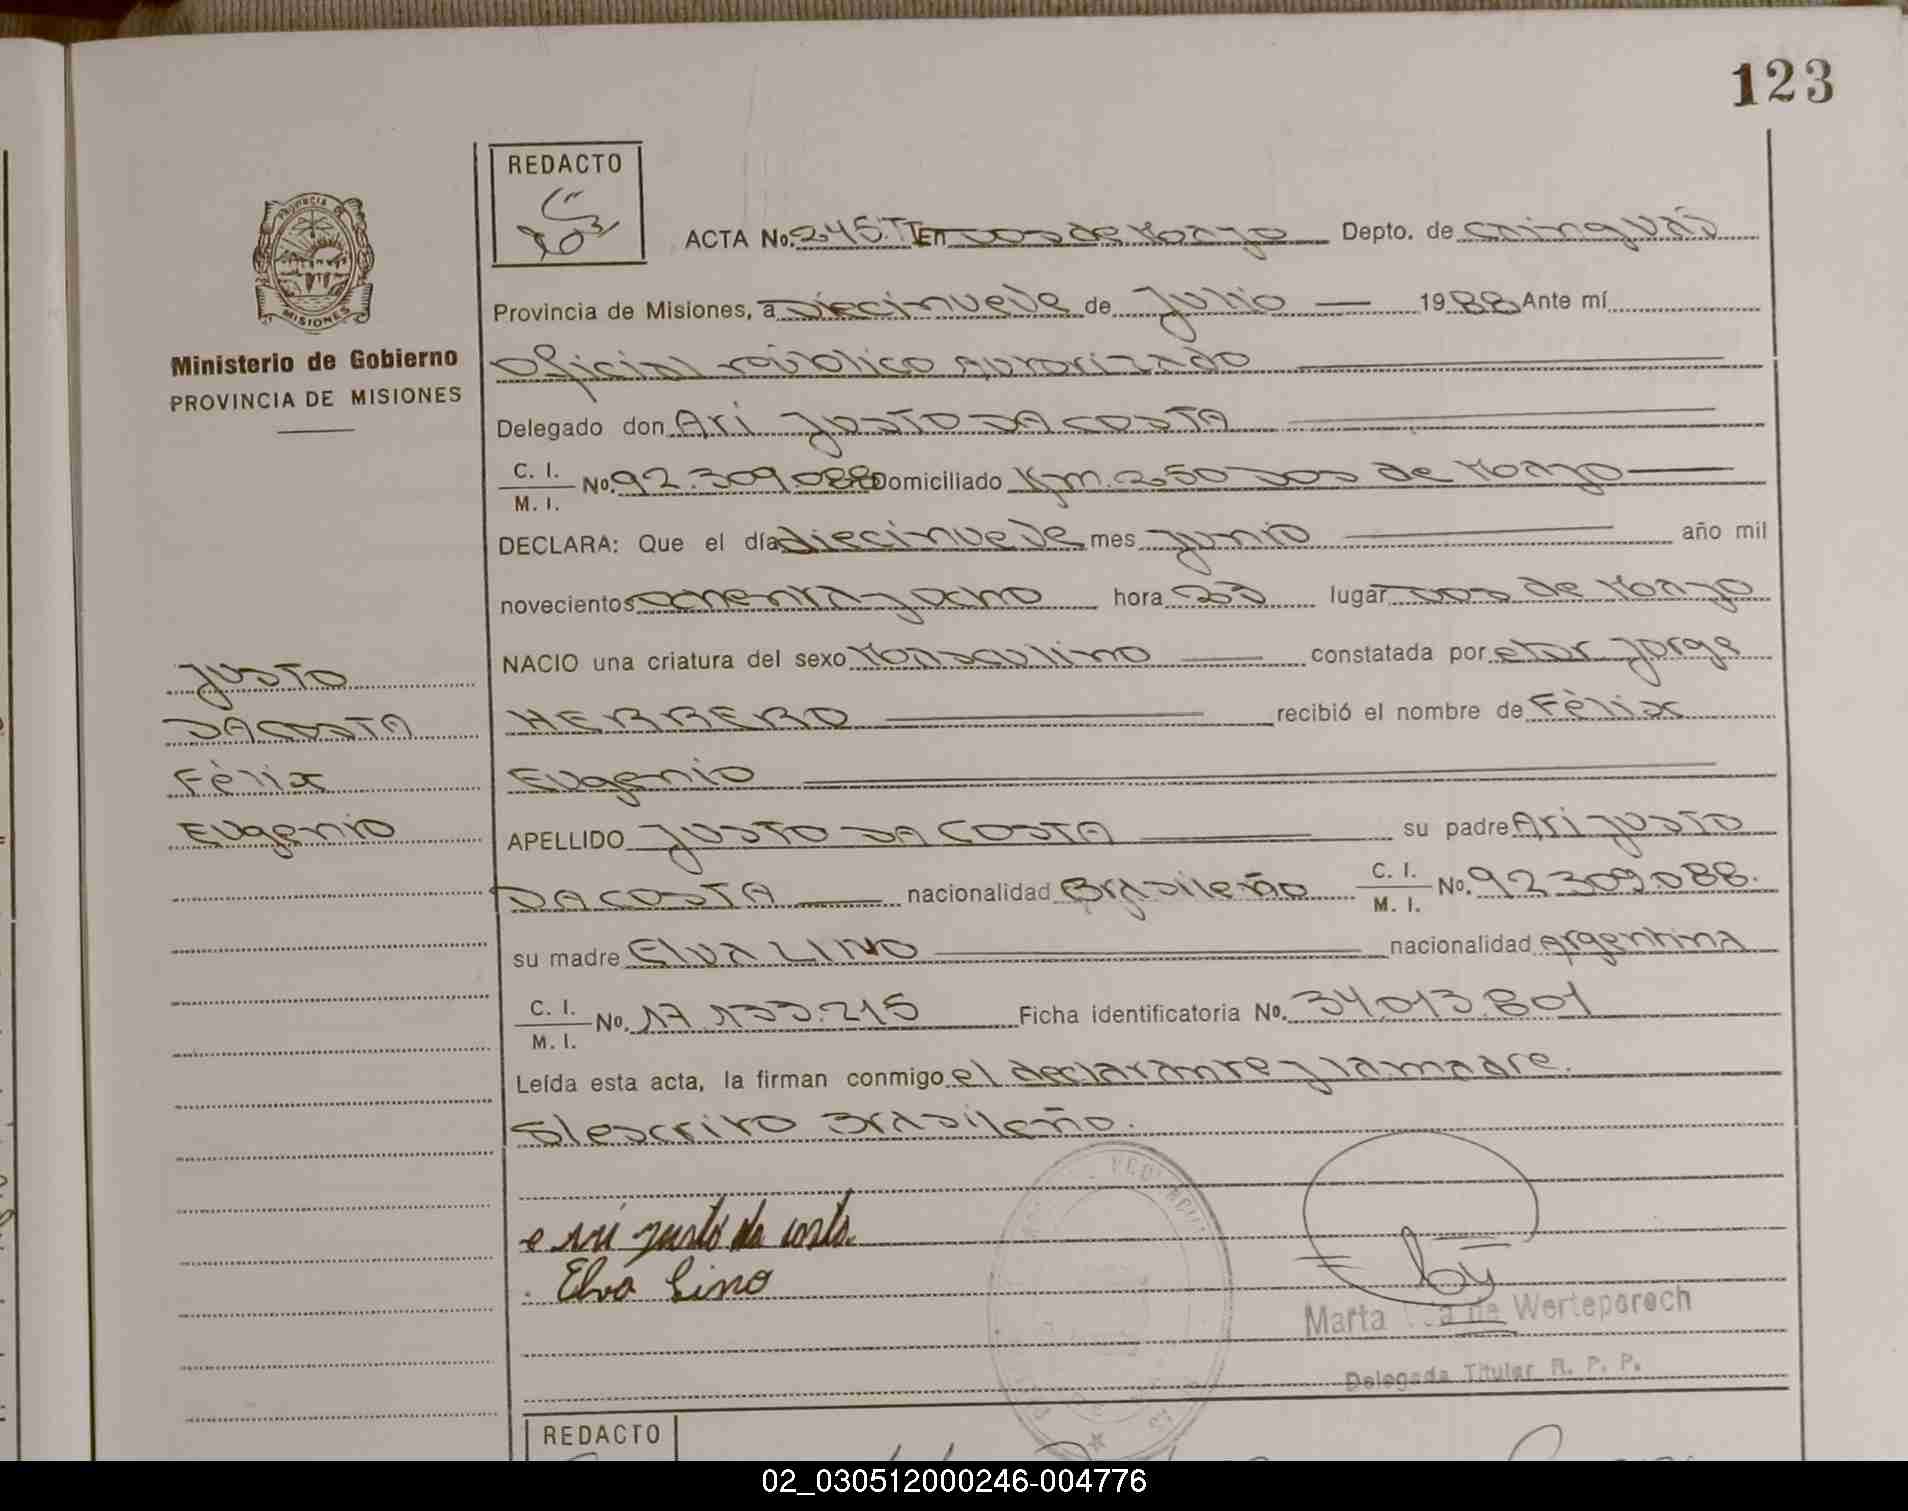 123
REDACTO
ACTA No. 245.T. En Dos de Mayo Depto. de Cainguás
PROVINCIA DE
MISIONES
Provincia de Misiones, a Diecinueve de Julio — 1988 Ante mí
Ministerio de Gobierno
PROVINCIA DE MISIONES
Oficial Público Autorizado
Delegado don Ari JUSTO DA COSTA
C. I.
M. I. No. 92.309.088 Domiciliado Km. 250 Dos de Mayo
DECLARA: Que el día diecinueve mes junio año mil
novecientos ochenta y ocho hora 23 lugar Dos de Mayo
NACIO una criatura del sexo Masculino constatada por etor Jorge
HERRERO recibió el nombre de Fèlix
Eugenio
JUSTO
DACOSTA
Fèlix
Eugenio
APELLIDO JUSTO DA COSTA su padre Ari JUSTO
DACOSTA nacionalidad Brasileño C. I.
M. I. No. 92.309.088.
su madre Elva LINO nacionalidad Argentina
C. I.
M. I. No. 17.133.215 Ficha identificatoria No. 34.013.801
Leída esta acta, la firman conmigo el declarante y la madre.
S/escrito Brasileño.
justo da costa
Elva Lino
Marta de Werteporoch
Delegada Titular R. P. P.
REDACTO
02_030512000246-004776